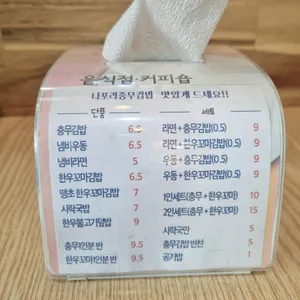 은식점·커피숍
나포리충무김밥 맛있게 드세요!!
단품
충무김밥 6.5
냄비우동 6.5
냄비라면 5
한우꼬마김밥 6.5
땡초 한우꼬마김밥 7
시락국밥 7
한우불고기덮밥 9
충무1인분 반 9.5
한우꼬마1인분 반 9.5
세트
라면+충무김밥(0.5) 9
라면+한우꼬마김밥(0.5) 9
우동+충무김밥(0.5) 9
우동+한우꼬마김밥(0.5) 9
1인세트(충무+한우꼬마) 10
2인세트(충무+한우꼬마) 15
시락국만 5
충무김밥 반찬 5
공기밥 1